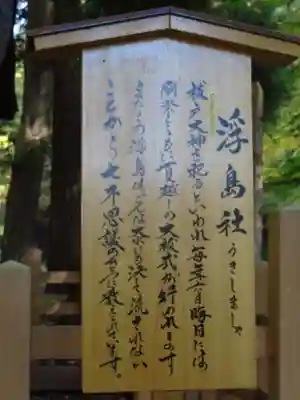 浮島社
うきしましゃ
祓戸大神を祀るといわれ毎年六月晦日には
例祭とともに夏越しの大祓式が行われます
またこの浮島はどんな大水にも決して流されない
ことから七不思議の一つに数えられています。